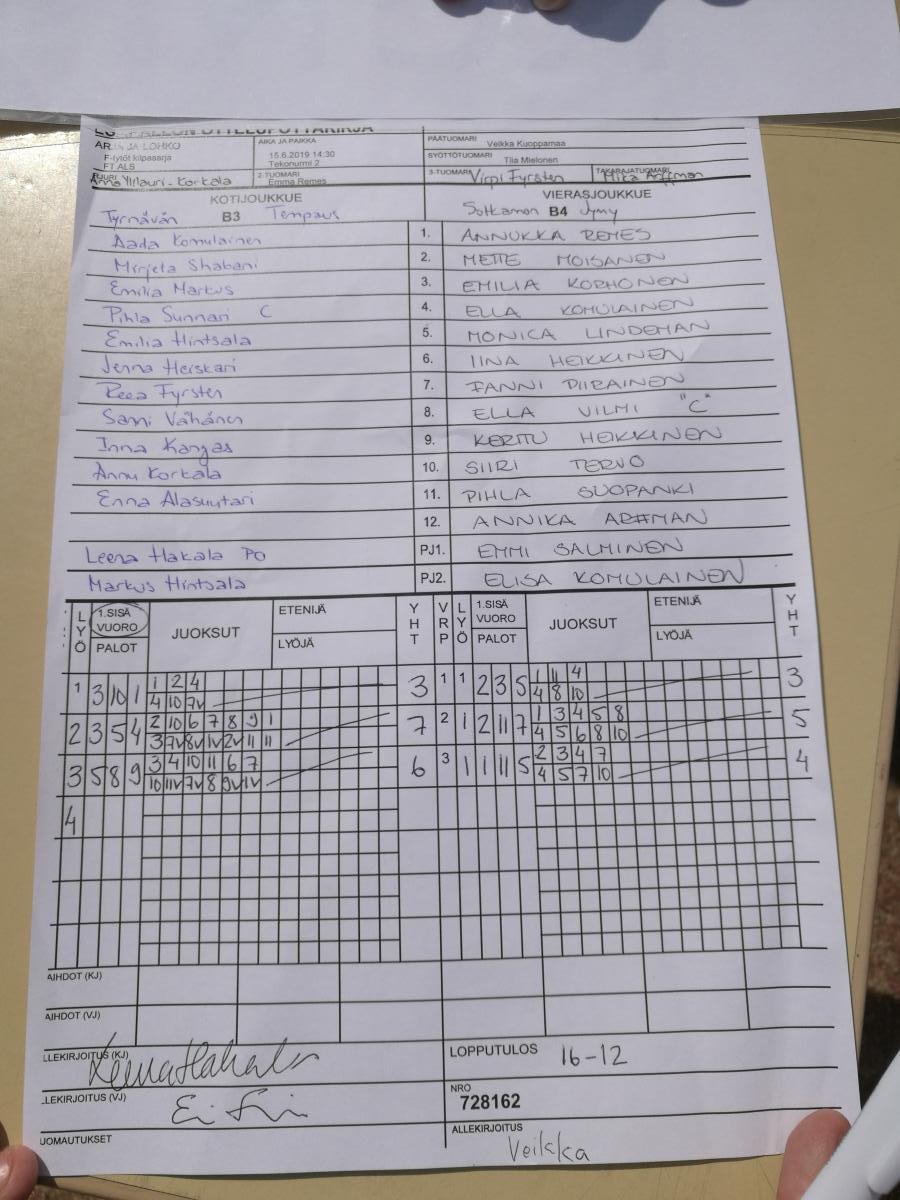 AIKA JA PAIKKA
PÄÄTUOMARI Veikka Kuoppamaa
F-tytöt kilpasarja
FT ALS
15.6.2019 14:30
Tekonurmi 2
SYÖTTÖTUOMARI Tiia Mielonen
Korkala
2-TUOMARI
Emma Remes
3-TUOMARI Virpi Fyrsten
TAKARAJATUOMARI
KOTIJOUKKUE VIERASJOUKKUE
Tyrnävän B3 Tempaus Sotkamon B4 Jymy
Aada Komulainen 1. ANNUKKA REMES
Mirjeta Shabani 2. METTE MOISANEN
Emilia Markus 3. EMILIA KORHONEN
Pihla Sunnari C 4. ELLA KOMULAINEN
Emilia Hintsala 5. MONICA LINDEMAN
Jenna Heiskari 6. IINA HEIKKINEN
Reea Fyrsten 7. FANNI PIIRAINEN
Sami Vähänen 8. ELLA VILMI "C"
Inna Kangas 9. KERTTU HEIKKINEN
Annu Korkala 10. SIIRI TERVO
Enna Alasuutari 11. PIHLA SUOPANKI
12. ANNIKA
Leena Hakala PO PJ1. EMMI SALMINEN
Markus Hintsala PJ2. ELISA KOMULAINEN
LYÖ 1.SISÄ VUORO PALOT JUOKSUT ETENIJÄ LYÖJÄ YHT VRP LYÖ 1.SISÄ VUORO PALOT JUOKSUT ETENIJÄ LYÖJÄ YHT
1 3 10 1 1 2 4 3 1 1 2 3 5 1 11 4 3
4 10 7v 4 8 10
2 3 5 4 2 10 6 7 8 9 1 7 2 1 2 11 7 1 3 4 5 8 5
3 7v 8v 1v 2v 11 11 4 5 6 8 10
3 5 8 9 3 4 10 11 6 7 6 3 1 1 11 5 2 3 4 7 4
10 11v 7v 8 9v 1v 4 5 7 10
4
AIHDOT (KJ)
AIHDOT (VJ)
LLEKIRJOITUS (KJ) Leena Hakala
LOPPUTULOS 16-12
LLEKIRJOITUS (VJ)
NRO
728162
UOMAUTUKSET
ALLEKIRJOITUS
Veikka